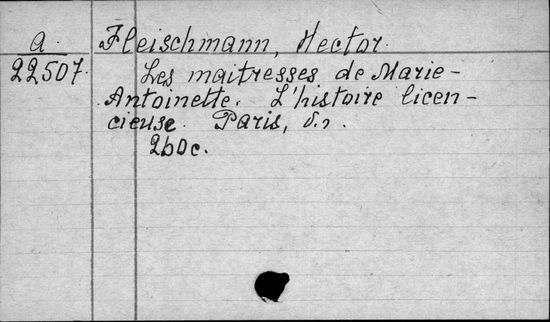 a
22507.
Fleischmann, Hector.
Les maitresses de Marie-
Antoinette. L'histoire licen-
cieuse. Paris, s.
260c.